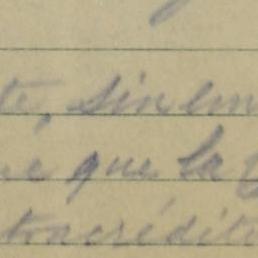 te, sin em
e que la
tracrédit